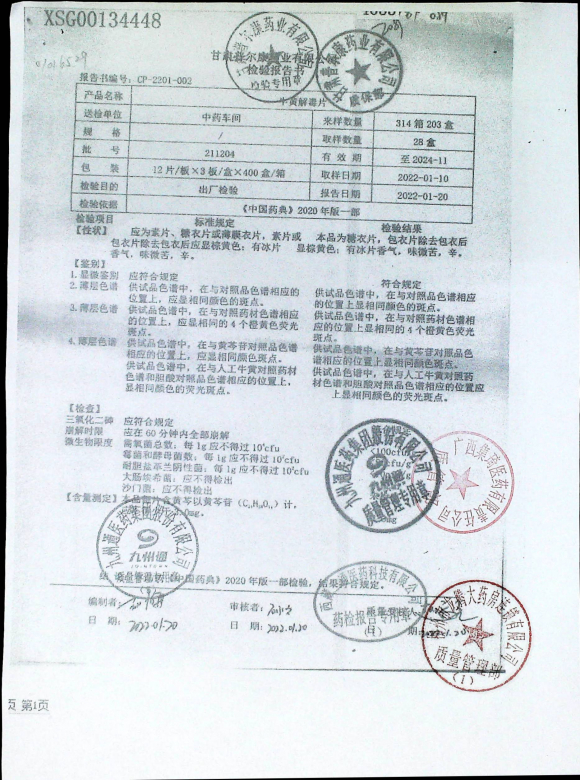 XSG00134448
检验报告书
报告书编号：CP-2201-002
产品名称 牛黄解毒片
送检单位 中药车间 来样数量 314箱203盒
规 格 / 取样数量 28盒
批 号 211204 有 效 期 至2024-11
包 装 12片/板×3板/盒×400盒/箱 取样日期 2022-01-10
检验目的 出厂检验 报告日期 2022-01-20
检验依据 《中国药典》2020年版一部
检验项目 标准规定 检验结果
【性状】 应为素片、糖衣片或薄膜衣片，素片或 本品为糖衣片，包衣片除去包衣后
包衣片除去包衣后应显棕黄色；有冰片 显棕黄色；有冰片香气，味微苦，辛。
香气，味微苦，辛。
【鉴别】
1.显微鉴别 应符合规定 符合规定
2.薄层色谱 供试品色谱中，在与对照品色谱相应的 供试品色谱中，在与对照品色谱相应
位置上，应显相同颜色的斑点。 的位置上显相同颜色的斑点。
3.薄层色谱 供试品色谱中，在与对照药材色谱相应 供试品色谱中，在与对照药材色谱相
的位置上，应显相同的4个橙黄色荧光 应的位置上显相同的4个橙黄色荧光
斑点。 斑点。
4.薄层色谱 供试品色谱中，在与黄芩苷对照品色谱 供试品色谱中，在与黄芩苷对照品色
相应的位置上，应显相同颜色斑点。 谱相应的位置上显相同颜色斑点。
供试品色谱中，在与人工牛黄对照药材 供试品色谱中，在与人工牛黄对照药
色谱和胆酸对照品色谱相应的位置上， 材色谱和胆酸对照品色谱相应的位置应
显相同颜色的荧光斑点。 上显相同颜色的荧光斑点。
【检查】
三氧化二砷 应符合规定
崩解时限 应在60分钟内全部崩解
微生物限度 需氧菌总数：每1g应不得过
霉菌和酵母菌数：每1g应不得过
耐胆盐革兰阴性菌：每1g应不得过
大肠埃希菌：应不得检出
沙门菌：应不得检出
【含量测定】 本品每片含黄芩以黄芩苷 计，
《中国药典》2020年版一部检验，结果符合规定。
编制者： 审核者：
日 期：2022.01.20 日 期：2022.01.20
九州通医药集团股份有限公司
九州通
JOINTOWN
质量管理专用章
药检报告专用章
质量管理部
（1）
质保部
检验专用章
页 第1页